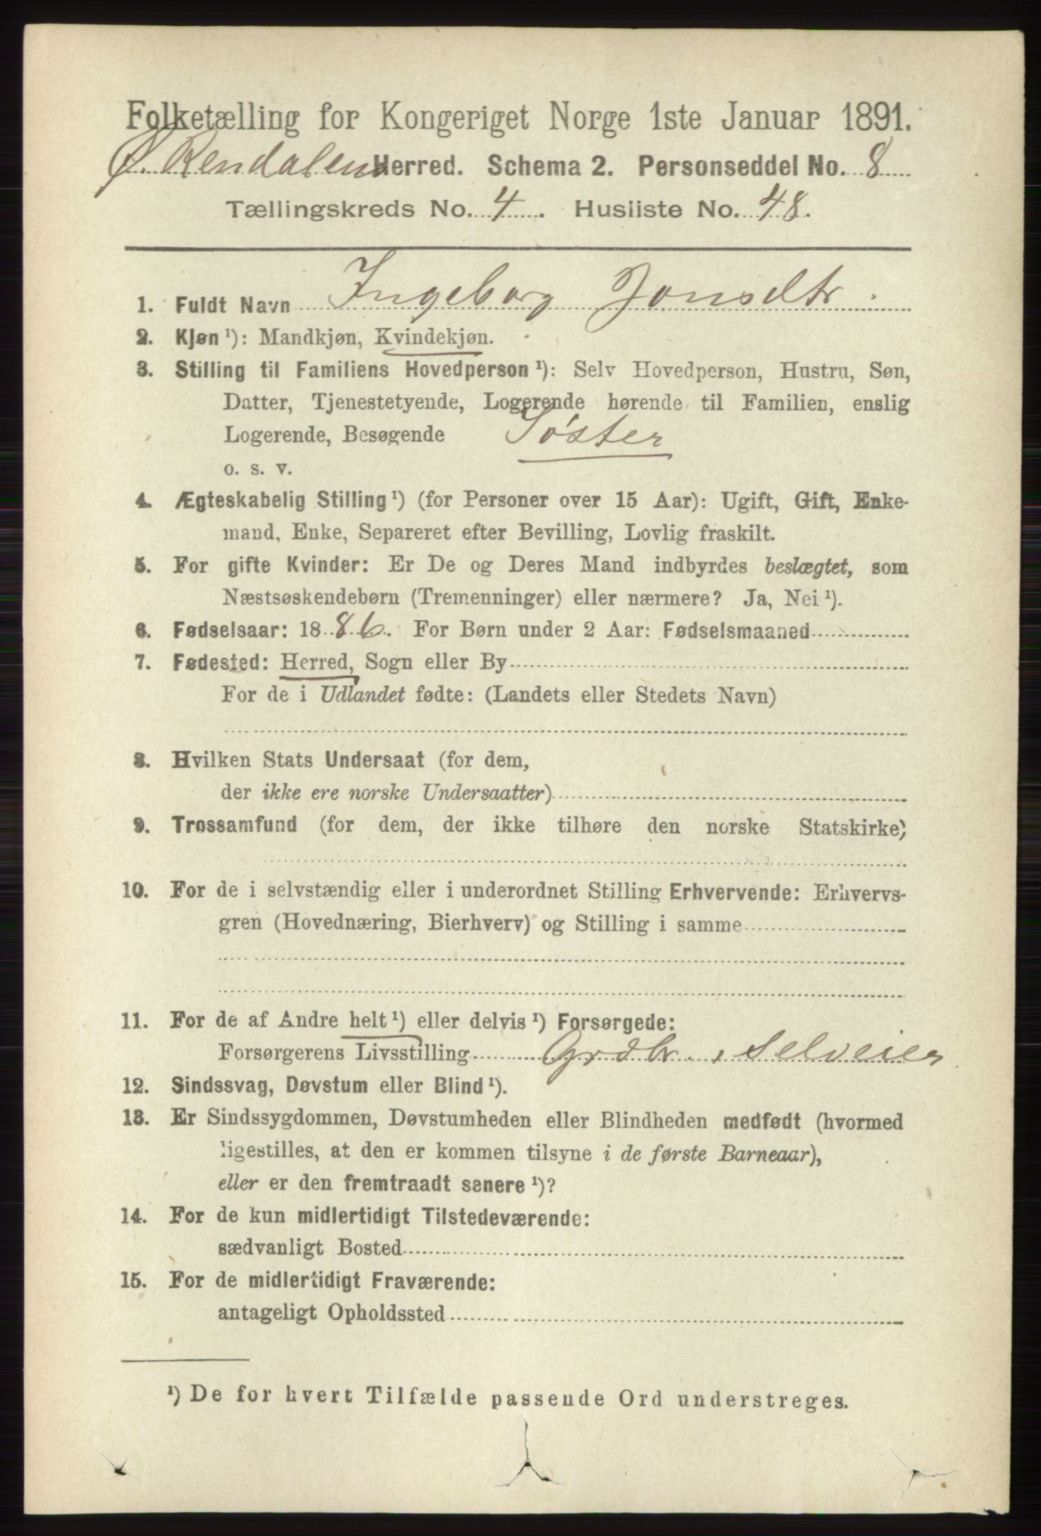 Folketælling for Kongeriget Norge 1ste Januar 1891.
Ø. Rendalen Herred. Schema 2. Personseddel No. 8
Tællingskreds No. 4. Husliste No. 48.
1. Fuldt Navn Ingeborg Jonsdtr.
2. Kjøn ¹): Mandkjøn, Kvindekjøn.
3. Stilling til Familiens Hovedperson ¹): Selv Hovedperson, Hustru, Søn,
Datter, Tjenestetyende, Logerende hørende til Familien, enslig
Logerende, Besøgende Søster
o. s. v.
4. Ægteskabelig Stilling ¹) (for Personer over 15 Aar): Ugift, Gift, Enke-
mand, Enke, Separeret efter Bevilling, Lovlig fraskilt.
5. For gifte Kvinder: Er De og Deres Mand indbyrdes beslægtet, som
Næstsøskendebørn (Tremenninger) eller nærmere? Ja, Nei ¹).
6. Fødselsaar: 1886. For Børn under 2 Aar: Fødselsmaaned
7. Fødested: Herred, Sogn eller By
For de i Udlandet fødte: (Landets eller Stedets Navn)
8. Hvilken Stats Undersaat (for dem,
der ikke ere norske Undersaatter)
9. Trossamfund (for dem, der ikke tilhøre den norske Statskirke)
10. For de i selvstændig eller i underordnet Stilling Erhvervende: Erhvervs-
gren (Hovednæring, Bierhverv) og Stilling i samme
11. For de af Andre helt ¹) eller delvis ¹) Forsørgede:
Forsørgerens Livsstilling Grdbr., selveier
12. Sindssvag, Døvstum eller Blind ¹).
13. Er Sindssygdommen, Døvstumheden eller Blindheden medfødt (hvormed
ligestilles, at den er kommen tilsyne i de første Barneaar),
eller er den fremtraadt senere ¹)?
14. For de kun midlertidigt Tilstedeværende:
sædvanligt Bosted
15. For de midlertidigt Fraværende:
antageligt Opholdssted
¹) De for hvert Tilfælde passende Ord understreges.